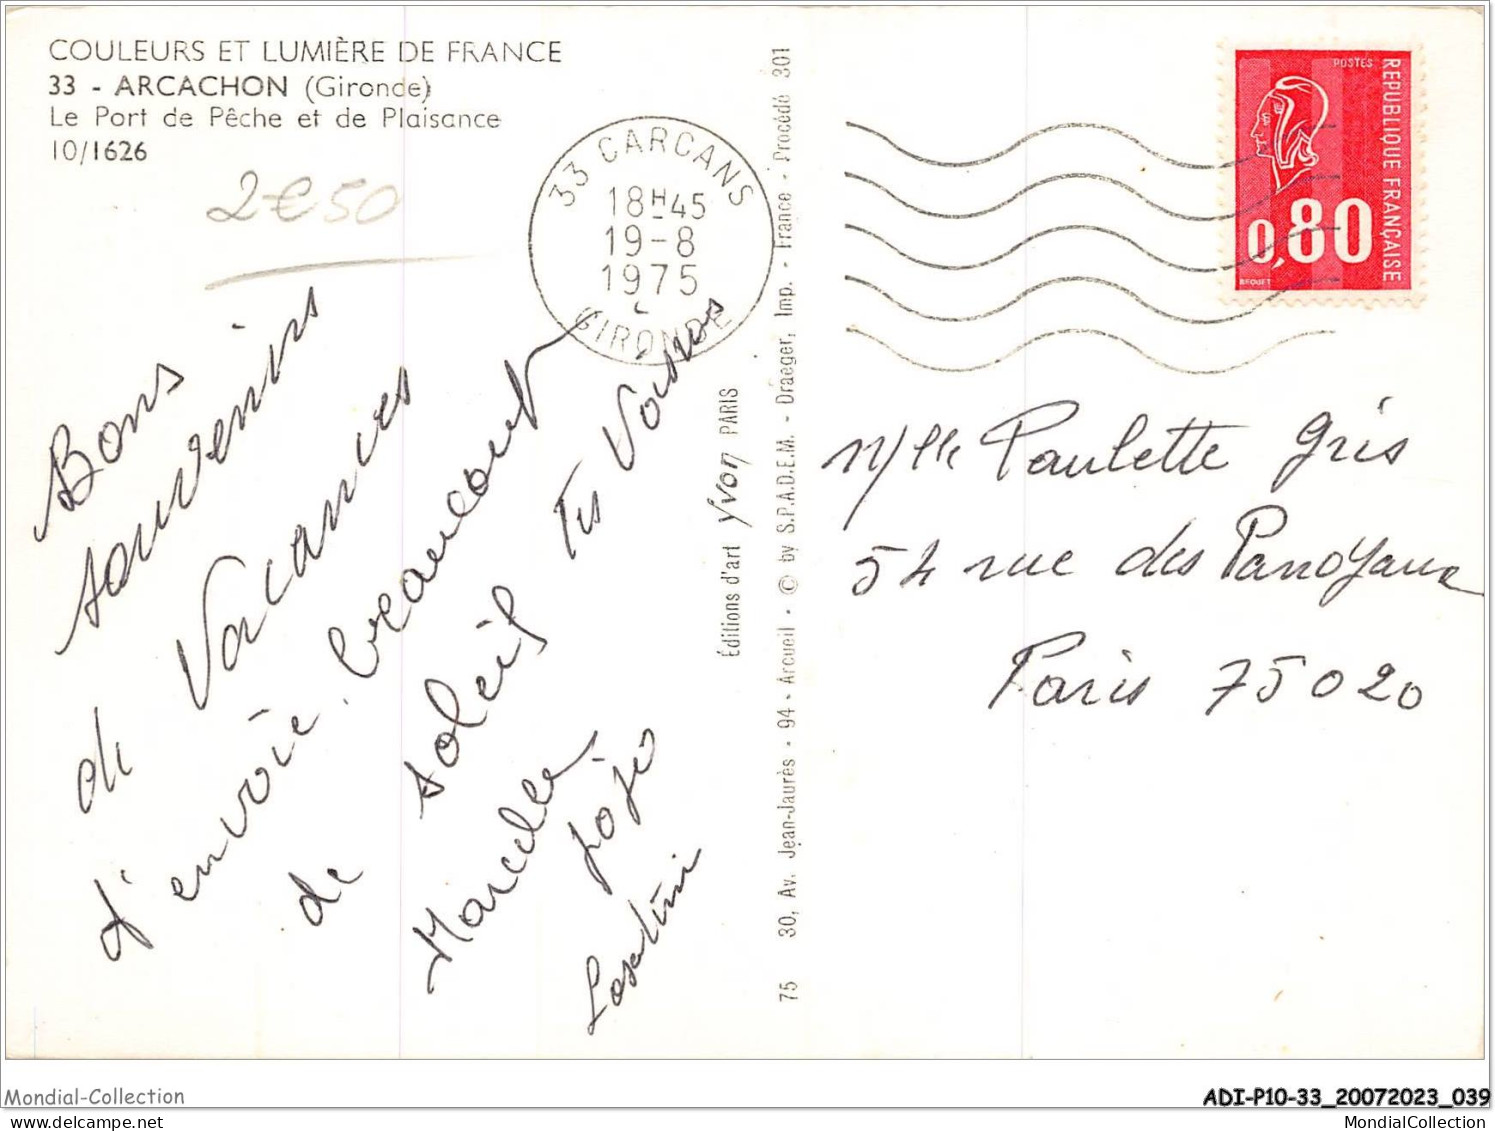 COULEURS ET LUMIÈRE DE FRANCE
33 - ARCACHON (Gironde)
Le Port de Pêche et de Plaisance
10/1626
2€50
33 CARCANS
18H45
19-8
1975
GIRONDE
POSTES
REPUBLIQUE FRANÇAISE
0,80
BEQUET
Bons
souvenirs
de Vacances
d'envoie. beaucoup
de soleil
Marcelle.
Jojo
Éditions d'art Yvon PARIS
75 30, Av. Jean-Jaurès - 94 - Arcueil - © by S.P.A.D.E.M. - Draeger, Imp. - France - Procédé 301
Mlle Paulette Gris
54 rue des Panoyaux
Paris 75020
Mondial-Collection
ADI-P10-33_20072023_039
MondialCollection